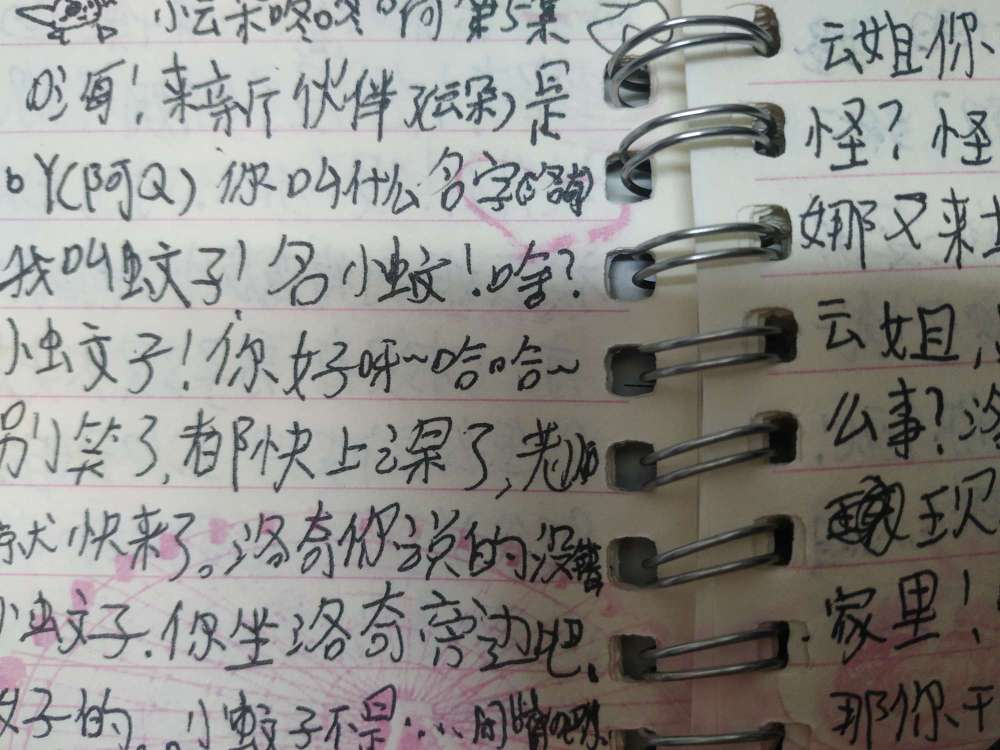 小云朵咚咚呵 第5集
嗨！来新伙伴了(云朵)是
Y(阿Q) 你叫什么名字
我叫蚊子！名小蚊！啥？
小蚊子！你好呀~哈哈~
别笑了，都快上课了，老师
快来了。洛奇你说的没错
小蚊子，你坐洛奇旁边吧，
子的 小蚊子不是
云姐你
怪？怪
娜又来
云姐，
么事？
现
家里！
那你干